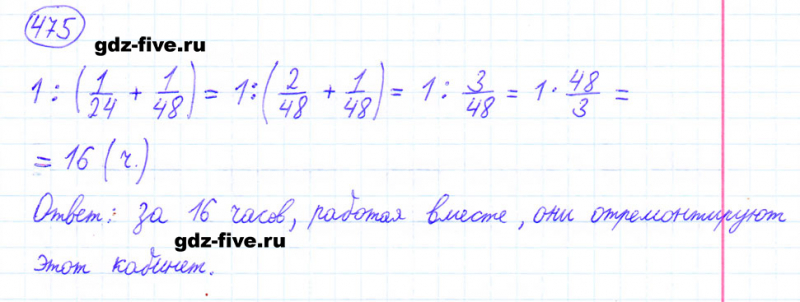 475
gdz-five.ru
1 : (1/24 + 1/48) = 1 : (2/48 + 1/48) = 1 : 3/48 = 1 · 48/3 =
= 16 (ч.)
Ответ: за 16 часов, работая вместе, они отремонтируют
gdz-five.ru
этот кабинет.